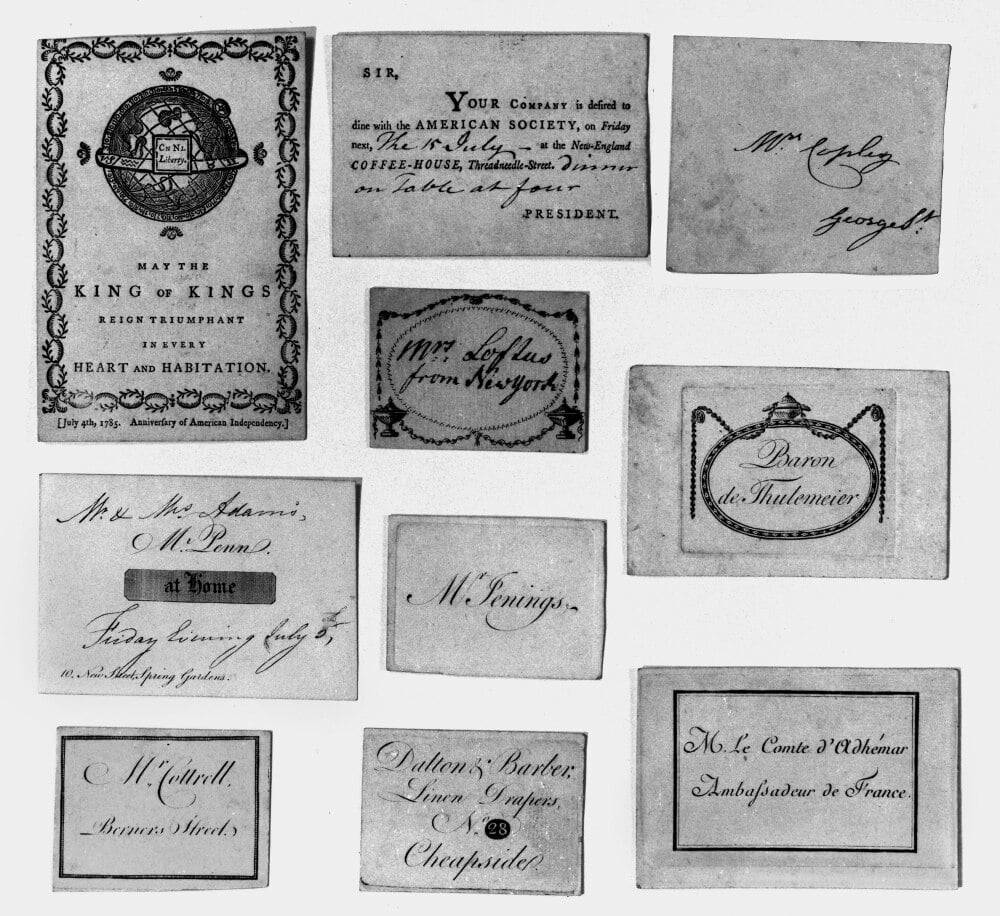 Cn Ni.
Liberty.
MAY THE
KING OF KINGS
REIGN TRIUMPHANT
IN EVERY
HEART AND HABITATION.
[July 4th, 1785. Anniversary of American Independency.]
SIR,
YOUR COMPANY is deſired to
dine with the AMERICAN SOCIETY, on Friday
next, The 15 July — at the New-England
COFFEE-HOUSE, Threadneedle-Street. dinner
on Table at four
PRESIDENT.
Mrs Copley
George St.
Mrs. Loftus
from New York
Baron
de Thulemeier
Mr. & Mrs Adams,
Mr. Penn.
at Home
Friday Evening July
10. New Street, Spring Gardens.
Mr. Jenings.
Mr. Cottrell,
Berners Street.
Dalton & Barber,
Linen Drapers,
No. 28
Cheapside.
M. Le Comte d'Adhémar
Ambaſsadeur de France.